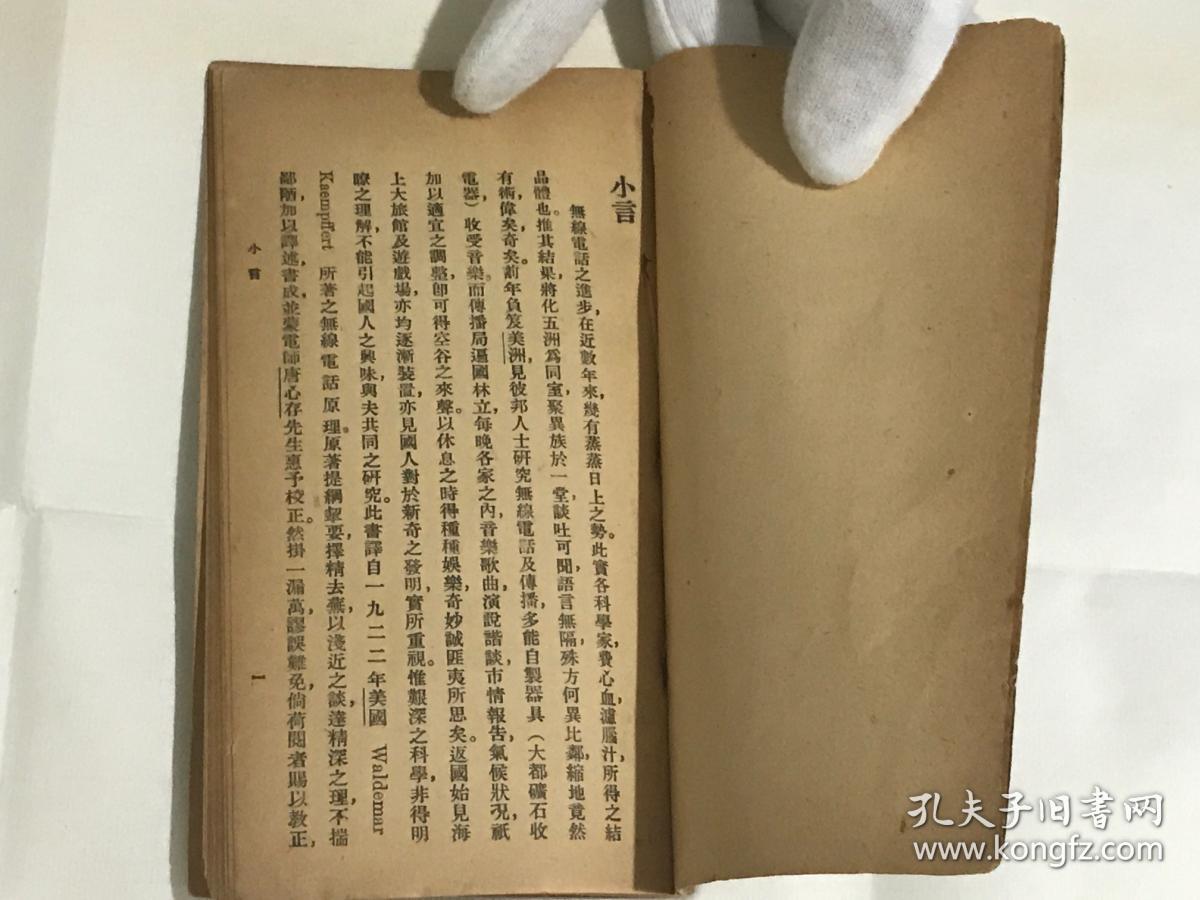 小言
無線電話之進步，在近數年來，幾有蒸蒸日上之勢。此實各科學家費心血，濾腦汁，所得之結
品體也。推其結果，將化五洲爲同室，聚異族於一堂，談吐可聞，語言無隔，殊方何異比鄰，縮地竟然
有術，偉矣奇矣。前年負笈美洲，見彼邦人士研究無線電話及傳播，多能自製器具（大都礦石收
電器）收受音樂。而傳播局遍國林立，每晚各家之內，音樂歌曲，演說諧談，市情報告，氣候狀況，祇
加以適宜之調整，卽可得空谷之來聲。以休息之時，得種種娛樂，奇妙誠匪夷所思矣。返國始見海
上大旅館及遊戲場，亦均逐漸裝置，亦見國人對於新奇之發明，實所重視。惟艱深之科學，非得明
瞭之理解，不能引起國人之興味，與夫共同之研究。此書譯自一九二二年美國 Waldemar
Kaempffert 所著之無線電話原理。原著提綱挈要，擇精去蕪，以淺近之談，達精深之理，不揣
鄙陋，加以譯述，書成並蒙電師唐心存先生惠予校正。然掛一漏萬，謬誤難免，倘荷閱者賜以教正，
小言
一
孔夫子旧书网
www.kongfz.com